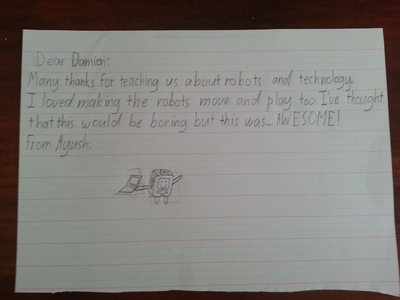 Dear Damien:
Many thanks for teaching us about robots and technology.
I loved making the robots move and play too. I've thought
that this would be boring but this was... AWESOME!
From Ayush: